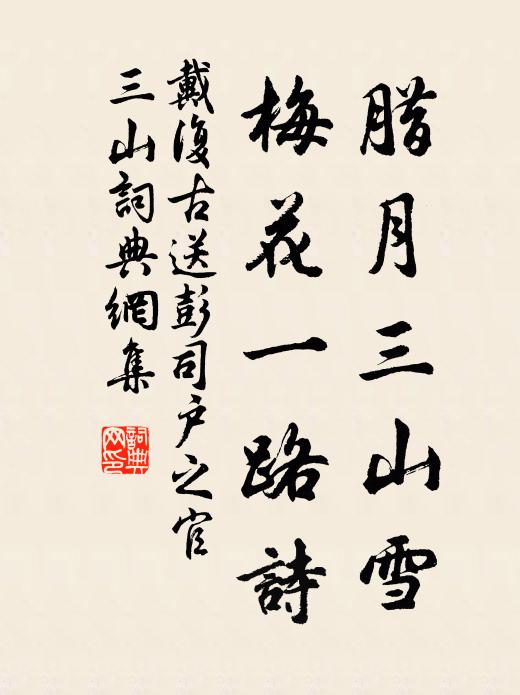 腊月三山雪
梅花一路詩
戴復古送彭司户之官
三山詞典網集
詞典
网印